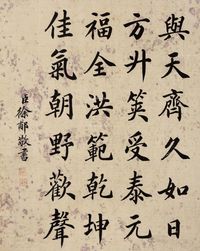 與天齊久如日
方升筴受泰元
福全洪範乾坤
佳氣朝野歡聲
臣徐郙敬書